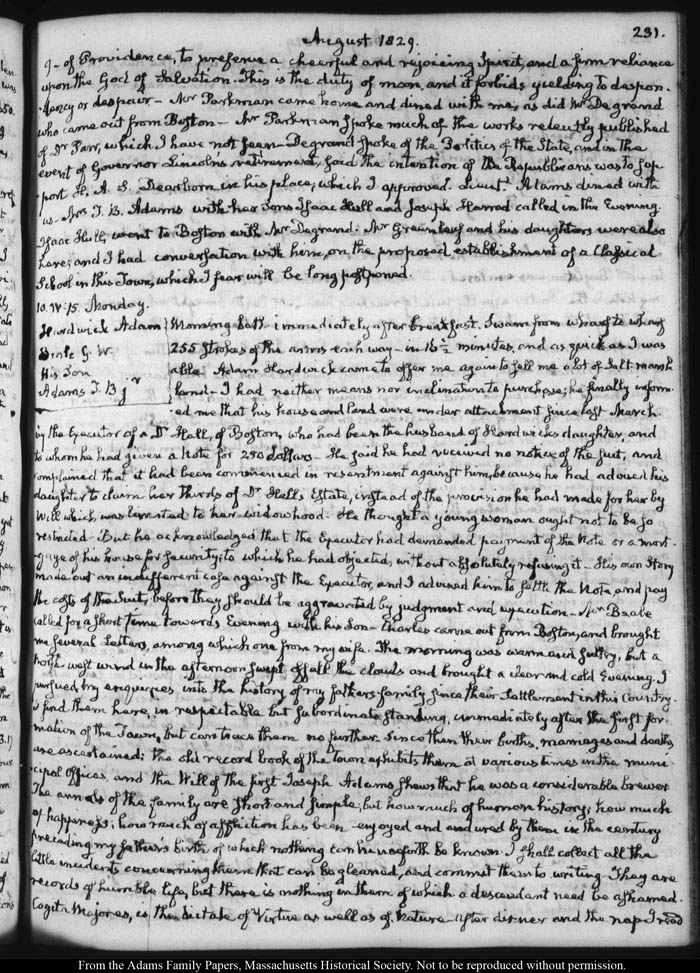 August 1829.
231.
of Providence, to preserve a cheerful and rejoicing Spirit, and a firm reliance
upon the God of Salvation. This is the duty of man, and it forbids yielding to despon-
dency or despair— Mr Parkman came home and dined with me, as did Mr Degrand
who came out from Boston— Mr Parkman spoke much of the works recently published
of Dr Parr, which I have not seen— Degrand spoke of the Politics of the State, and in the
event of Governor Lincoln's retirement, said the intention of the Republicans was to sup-
port H. A. S. Dearborn in his place, which I approved. Lieut. Adams dined with
us. Mrs T. B. Adams with her Sons Isaac Hull and Joseph Harrod called in the Evening.
Isaac Hull, went to Boston with Mr Degrand. Mr Greenleaf and his daughters were also
here; and I had conversation with him, on the proposed establishment of a Classical
School in this Town, which I fear will be long postponed.
10. IV:15. Monday.
Hardwick Adam
Beale G. W.
His Son
Adams T. B jr
Morning bath immediately after breakfast. Swam from wharf to wharf
255 strokes of the arms each way— in 16 minutes, and as quick as I was
able. Adam Hardwick came to offer me again to sell me a lot of Salt marsh
land— I had neither means nor inclination to purchase; he finally inform-
ed me that his house and land were under attachment since last March.
by the Executor of a Dr Hall, of Boston, who had been the husband of Hardwicks daughter, and
to whom he had given a Note for 250 dollars— He said he had received no notice of the suit, and
complained that it had been commenced in resentment against him, because he had advised his
daughter to claim her thirds of Dr Hall's Estate, instead of the provision he had made for her by
Will which was limited to her widowhood. He thought a young woman ought not to be so
restricted— But he acknowledged that the Executor had demanded payment of the Note or a mort-
gage of his house for security; to which he had objected, without absolutely refusing it— His own Story
made out an indifferent case against the Executor, and I advised him to settle the Note, and pay
the costs of the Suit, before they should be aggravated by judgment and execution— Mr Beale
called for a short time towards Evening with his Son— Charles came out from Boston, and brought
me several Letters, among which one from my wife. The morning was warm and sultry, but a
North west wind in the afternoon swept off all the clouds and brought a clear and cold Evening. I
pursued my enquiries into the history of my fathers family since their Settlement in this Country.
I find them here, in respectable but subordinate standing, immediately after the first for-
mation of the Town, but can trace them no further. Since then their births, marriages and deaths
are ascertained; the old record book of the Town exhibits them at various times in the muni-
cipal offices, and the Will of the first Joseph Adams shews that he was a considerable brewer.
The annals of the family are short and simple; but how much of human history; how much
of happiness; how much of affliction has been enjoyed and endured by them in the century
preceding my fathers birth of which nothing can henceforth be known. I shall collect all the
little incidents concerning them that can be gleaned, and commit them to writing— They are
records of humble life, but there is nothing in them of which a descendant need be ashamed.
Cogita Majores, is the dictate of Virtue as well as of Nature— After dinner and the nap I read
From the Adams Family Papers, Massachusetts Historical Society. Not to be reproduced without permission.